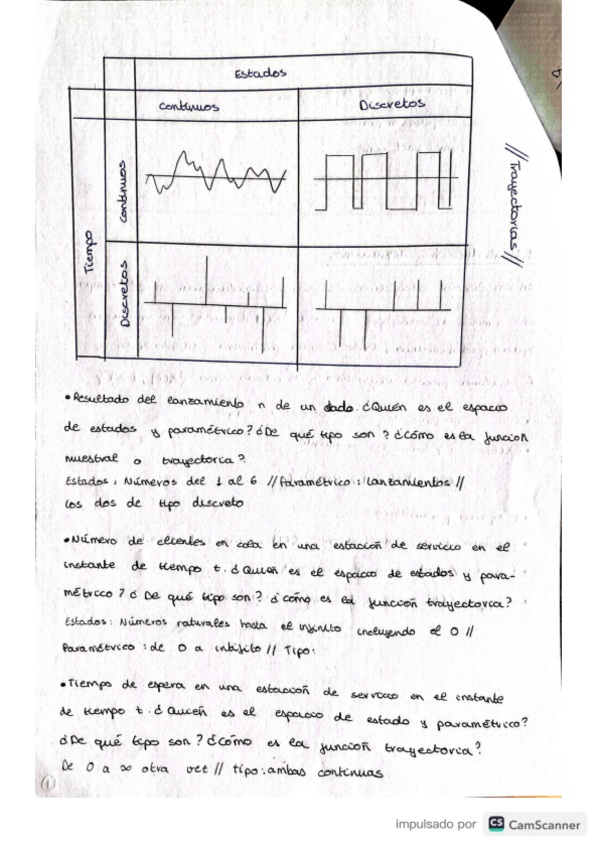 Estados
Continuos
Discretos
Tiempo
Continuos
Discretos
//Trayectorias//
• Resultado del lanzamiento n de un dado. ¿Quién es el espacio
de estados y paramétrico? ¿De qué tipo son? ¿Cómo es la función
muestral o trayectoria?
Estados, Números del 1 al 6 // Paramétrico: Lanzamientos //
Los dos de tipo discreto
• Número de clientes en cola en una estación de servicio en el
instante de tiempo t. ¿Quien es el espacio de estados y para-
métrico? ¿De qué tipo son? ¿cómo es la función trayectoria?
Estados: Números naturales hasta el infinito incluyendo el 0 //
Paramétrico: de 0 a infinito // Tipo:
• Tiempo de espera en una estación de servicio en el instante
de tiempo t. ¿Quién es el espacio de estado y paramétrico?
¿De qué tipo son? ¿cómo es la función trayectoria?
De 0 a ∞ otra vez // tipo: ambas continuas.
1
impulsado por CS CamScanner